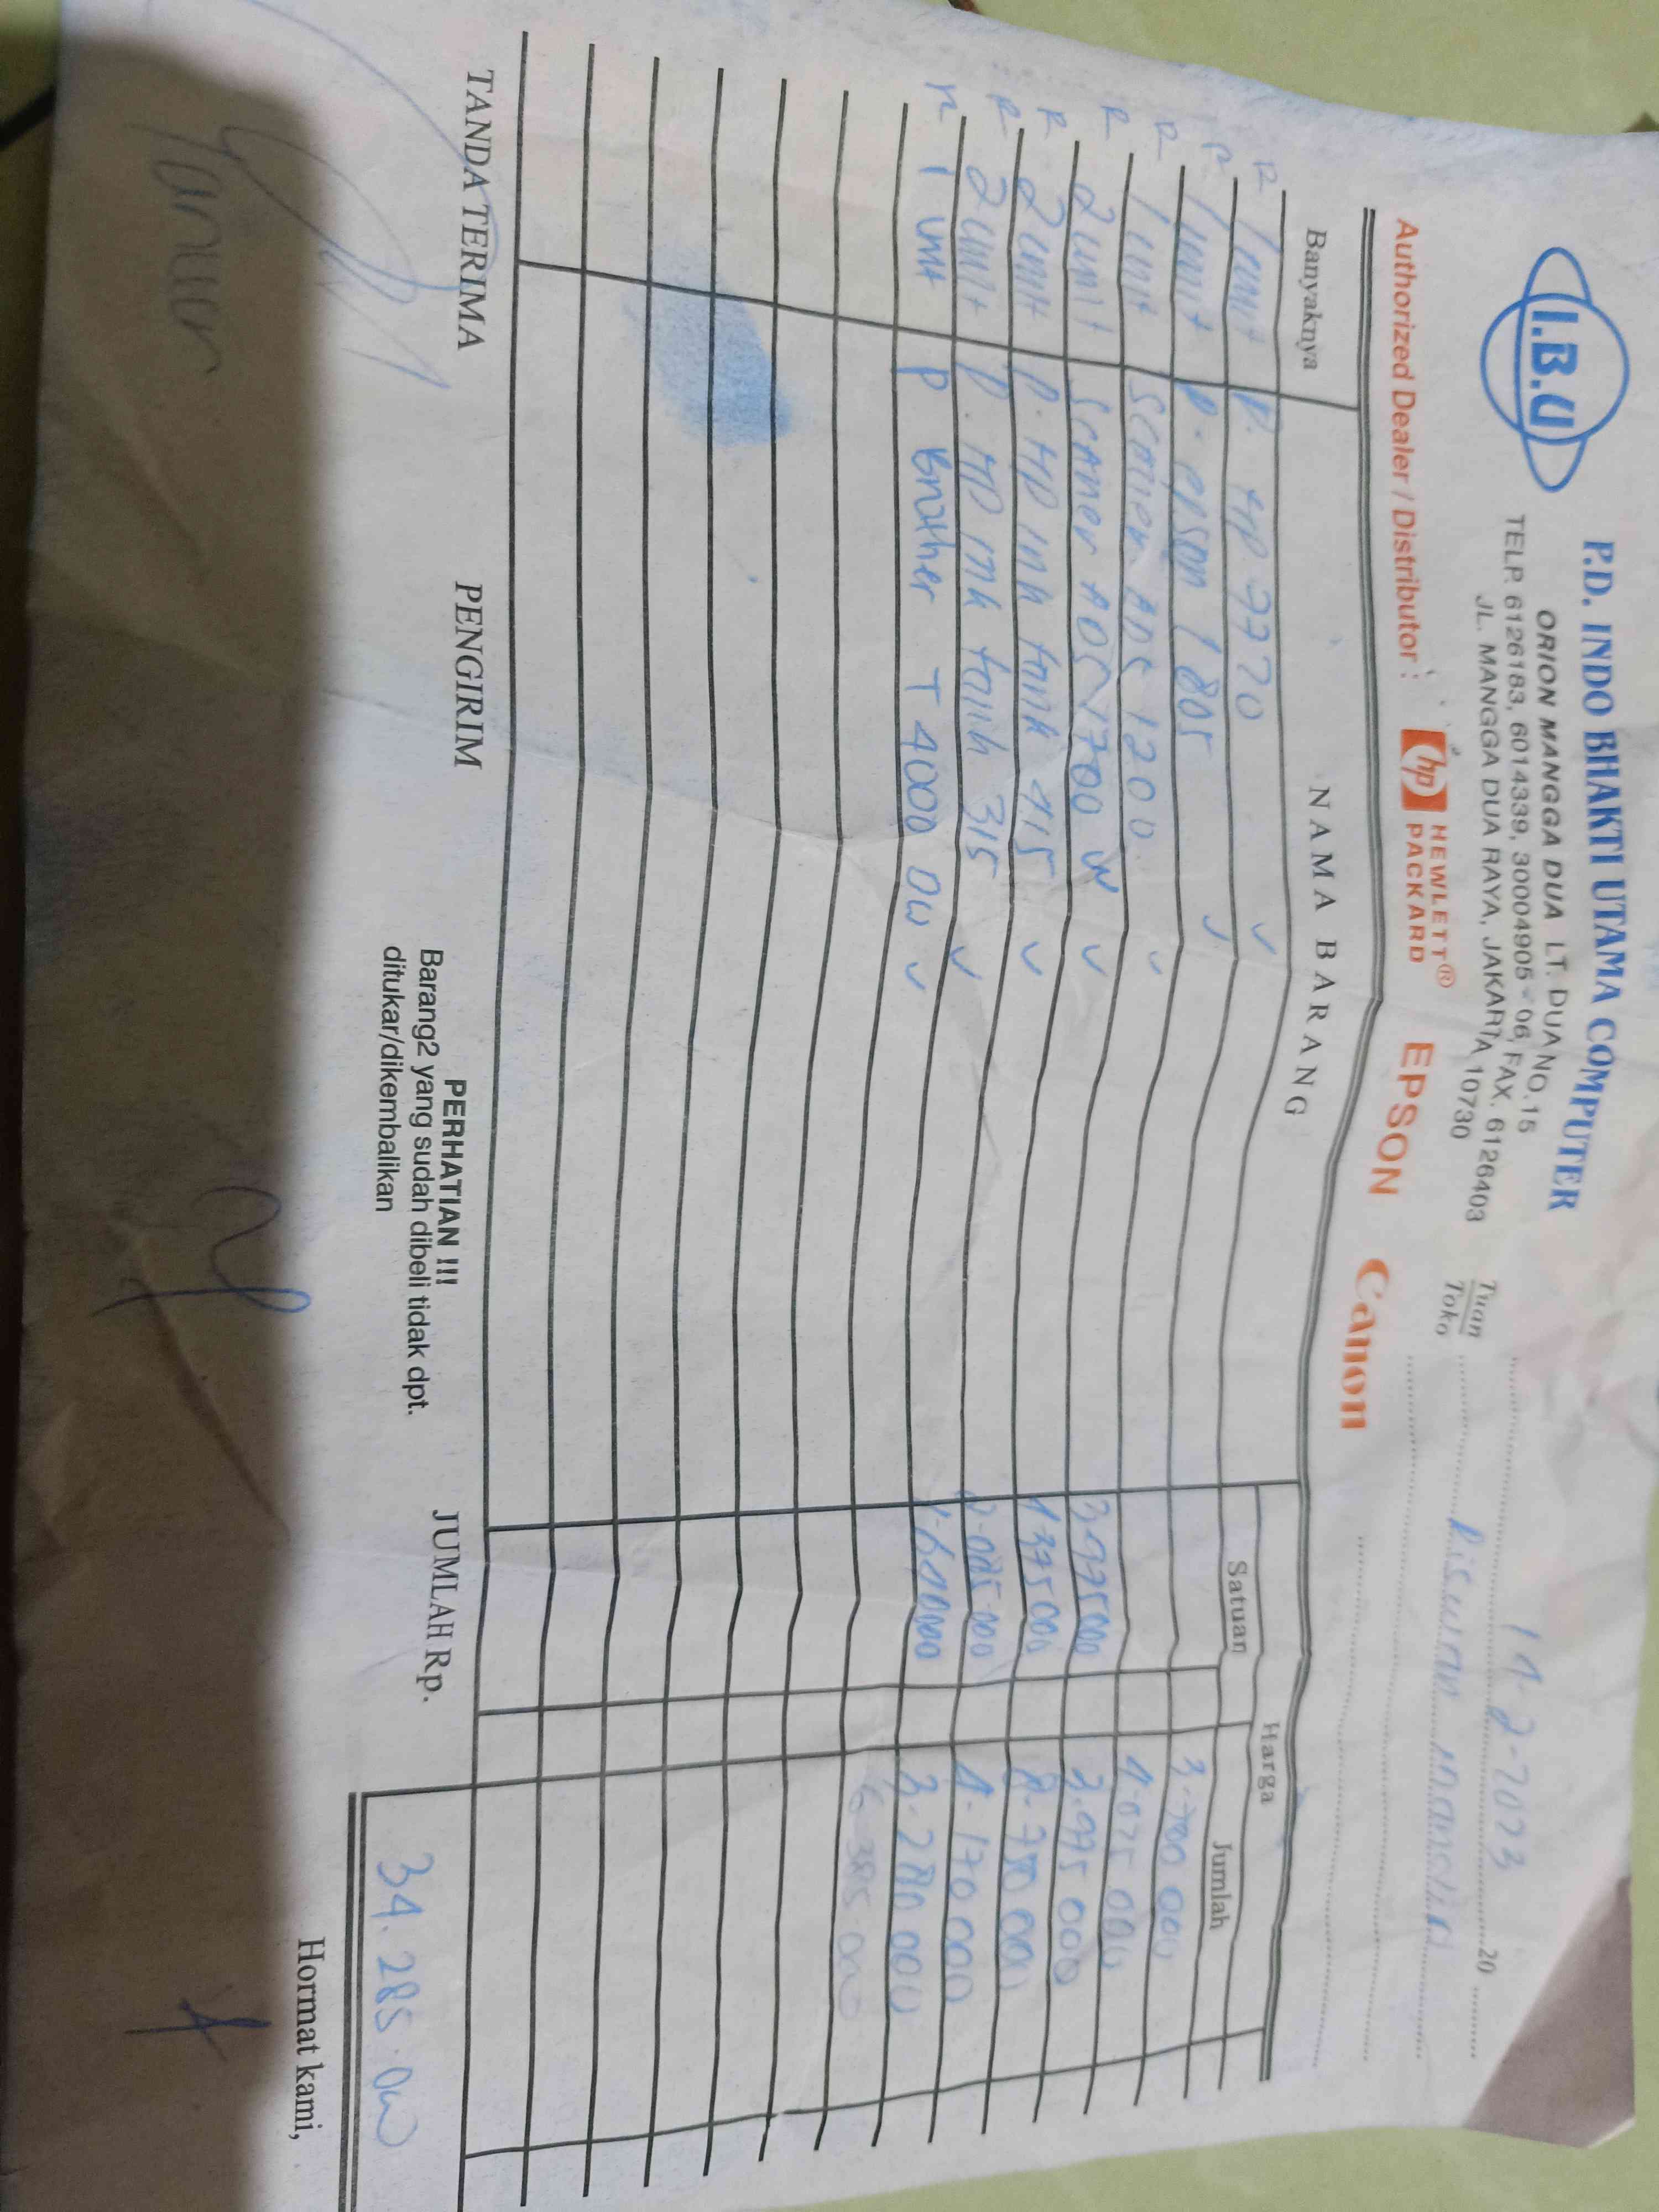 I.B.U
P.D. INDO BHAKTI UTAMA COMPUTER
ORION MANGGA DUA LT. DUA NO.15
TELP. 6126183, 6014339, 30004905 - 06, FAX. 6126403
JL. MANGGA DUA RAYA, JAKARTA 10730
Authorized Dealer / Distributor :
hp HEWLETT® PACKARD EPSON Canon
14-2-2023 20
Tuan
Toko
Banyaknya NAMA BARANG Harga
Satuan Jumlah
R 1 unit P. 7720 ✓
R 1 unit P. epson 1805 ✓ 3.700 000
R 1 unit Scanner ADS 1200 ✓ 4.075 000
R 2 unit Scanner ADS 1700 W ✓ 3.975000 3.975 000
R 2 unit P. HP ink tank 415 ✓ 4.375000 8.750 000
R 2 unit P. HP ink tank 315 ✓ 2.085 000 4.170 000
R 1 unit P Brother T 4000 DW ✓ 3.280 000
6 385.000
TANDA TERIMA PENGIRIM
PERHATIAN !!!
Barang2 yang sudah dibeli tidak dpt.
ditukar/dikembalikan
JUMLAH Rp. 34.285.000
Hormat kami,